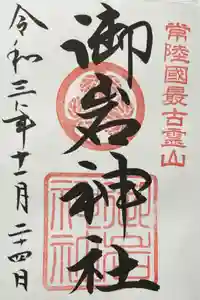 常陸國最古霊山
御岩神社
令和三年十一月二十四日
御岩神社